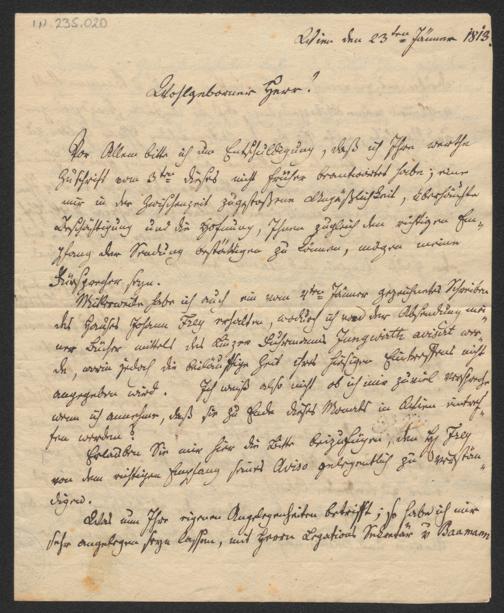 IN. 235.020
Wien den 23ten Jänner 1813.
Wohlgeborner Herr!
Vor Allem bitte ich um Entschuldigung, daß ich Ihre werthe
Zuschrift vom 3ten dieses nicht früher beantwortet habe; eine
mir in der Zwischenzeit zugestoßene Unpäßlichkeit, überhäufte
Beschäftigung und die Hoffnung, Ihnen zugleich den richtigen Em-
pfang der Sendung bestättigen zu können, mögen meine
Fürsprecher seyn.
Mittlerweile habe ich auch ein vom Jänner gezeichnetes Schreiben
des Hauses Johann Frey erhalten, wodurch ich von der Absendung mei-
ner Bücher mittels des Linzer Fuhrmanns Jungwirth avisirt wer-
de, worin jedoch die beiläufige Zeit ihres hiesigen Eintreffens nicht
angegeben wird. Ich weiß also nicht ob ich mir zuviel verspreche
wenn ich annehme, daß sie zu Ende dieses Monats in Wien eintref-
fen werden?
Erlauben Sie mir hier die Bitte beizufügen, den H Frey
von dem richtigen Empfang seines Aviso gelegentlich zu verstän-
digen.
Was nun Ihre eigenen Angelegenheiten betrifft; so habe ich mir
sehr angelegen seyn lassen, mit Herrn Legations Sekretär v Baumann